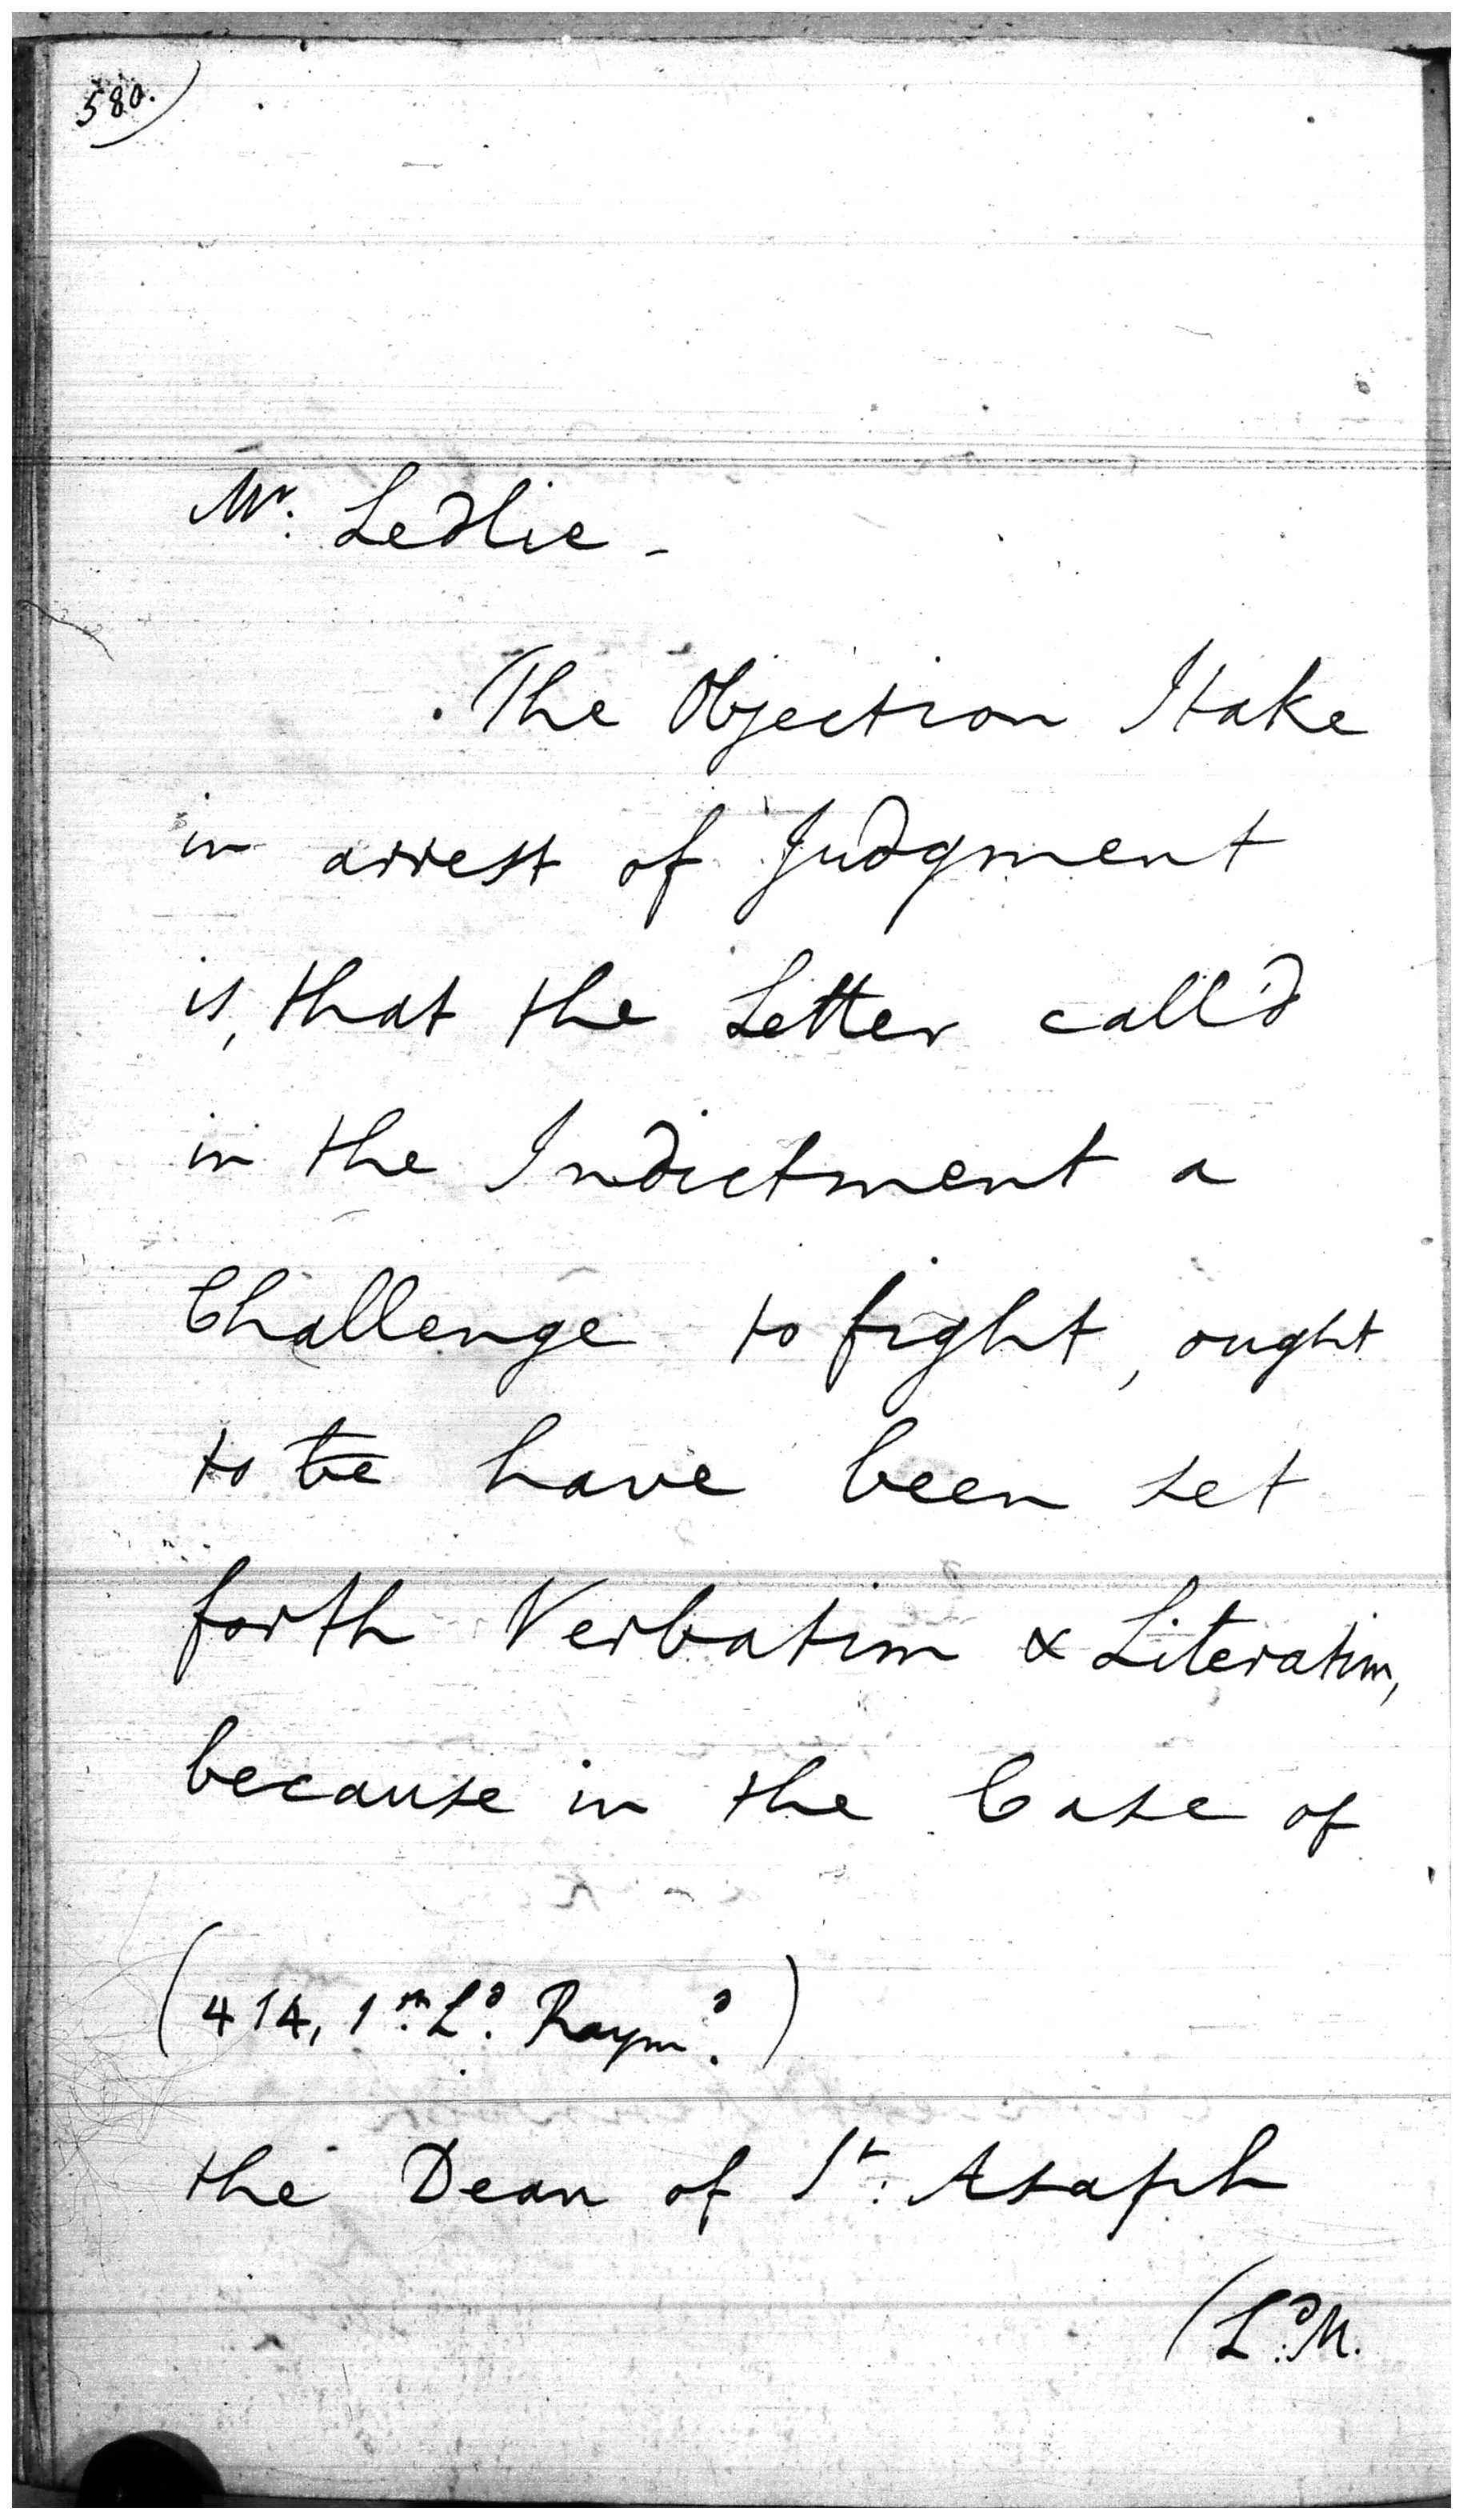 580.)
Mr: Ledlie -
The Objection I take
in arrest of Judgment
is, that the Letter call'd
in the Indictment a
Challenge to fight, ought
to be have been set
forth Verbatim & Literatim,
because in the Case of
(414, 1st Ld. Raymd.)
the Dean of St: Asaph
(Ld. M.